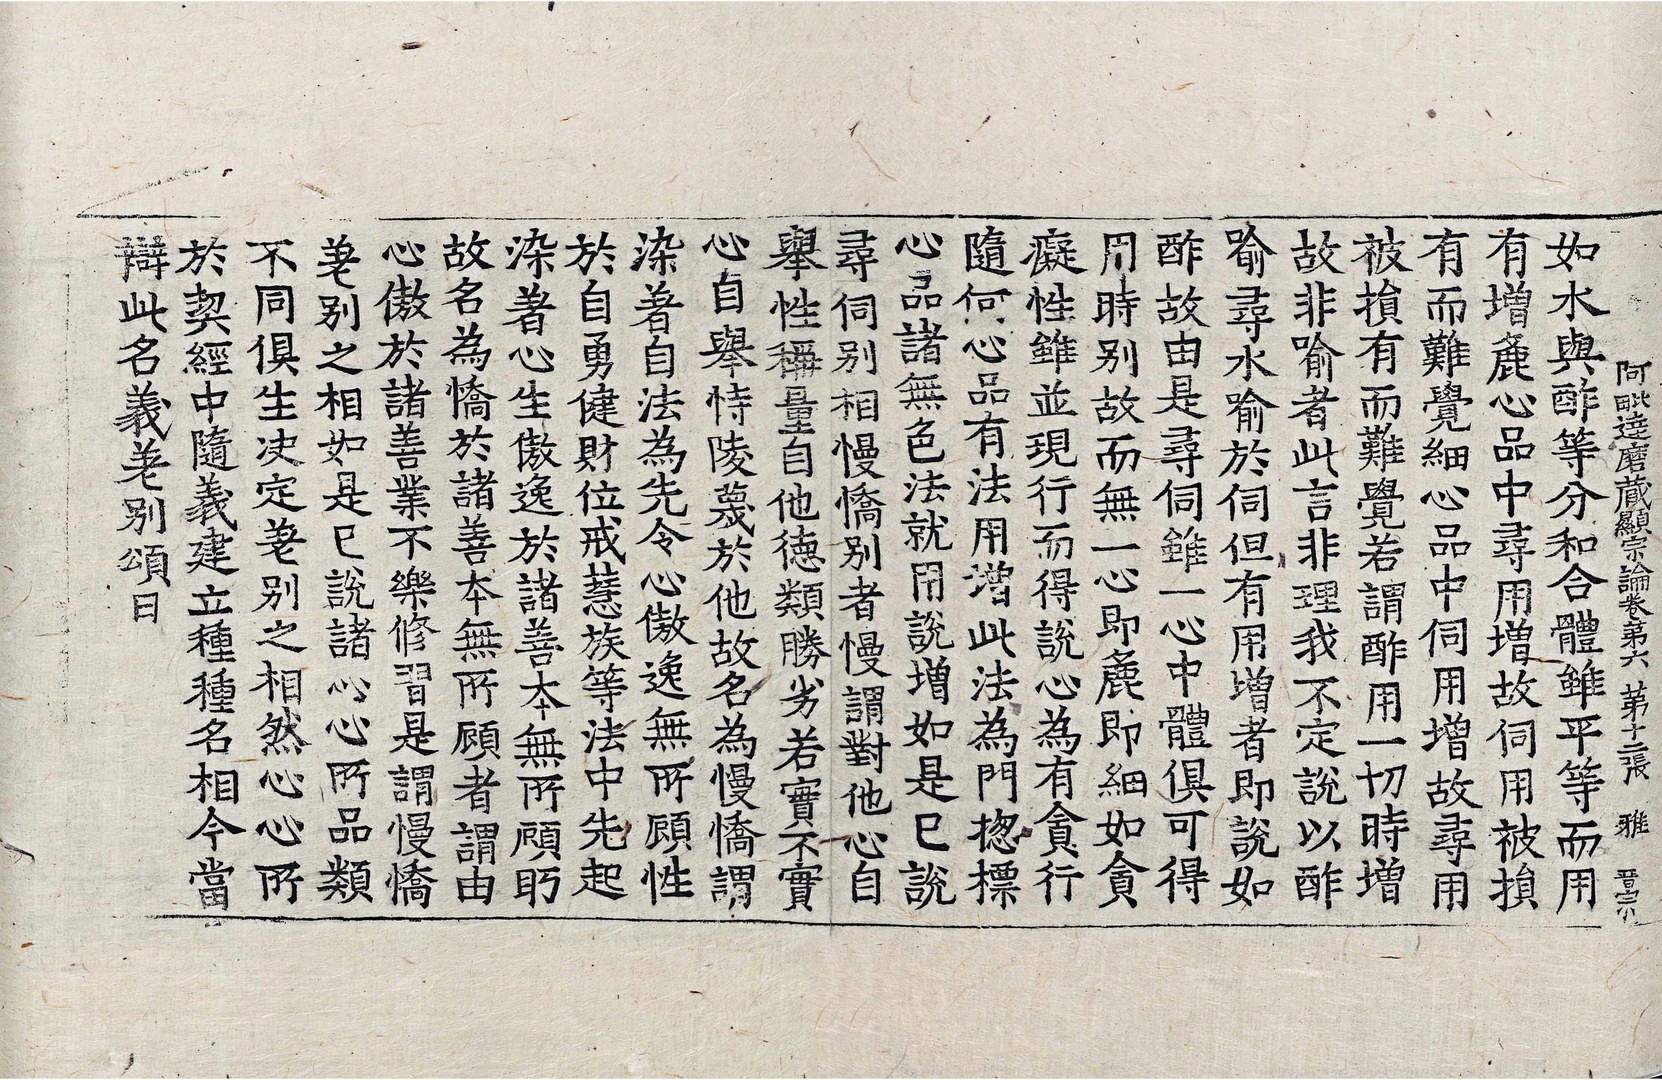 阿毗達磨藏顯宗論卷第六 第十二張 雅
如水與酢等分和合體雖平等而用
有增麁心品中尋用增故伺用被損
有而難覺細心品中伺用增故尋用
被損有而難覺若謂酢用一切時增
故非喻者此言非理我不定說以酢
喻尋水喻於伺但有用增者即說如
酢故由是尋伺雖一心中體俱可得
用時別故而無一心即麁即細如貪
癡性雖並現行而得說心為有貪行
隨何心品有法用增此法為門揔標
心品諸無色法就用說增如是已說
尋伺別相慢憍別者慢謂對他心自
舉性稱量自他德類勝劣若實不實
心自舉恃陵蔑於他故名為慢憍謂
染著自法為先令心傲逸無所顧性
於自勇健財位戒慧族等法中先起
染著心生傲逸於諸善本無所顧眄
故名為憍於諸善本無所顧者謂由
心傲於諸善業不樂修習是謂慢憍
差別之相如是已說諸心心所品類
不同俱生决定差別之相然心心所
於契經中隨義建立種種名相今當
辯此名義差別頌曰